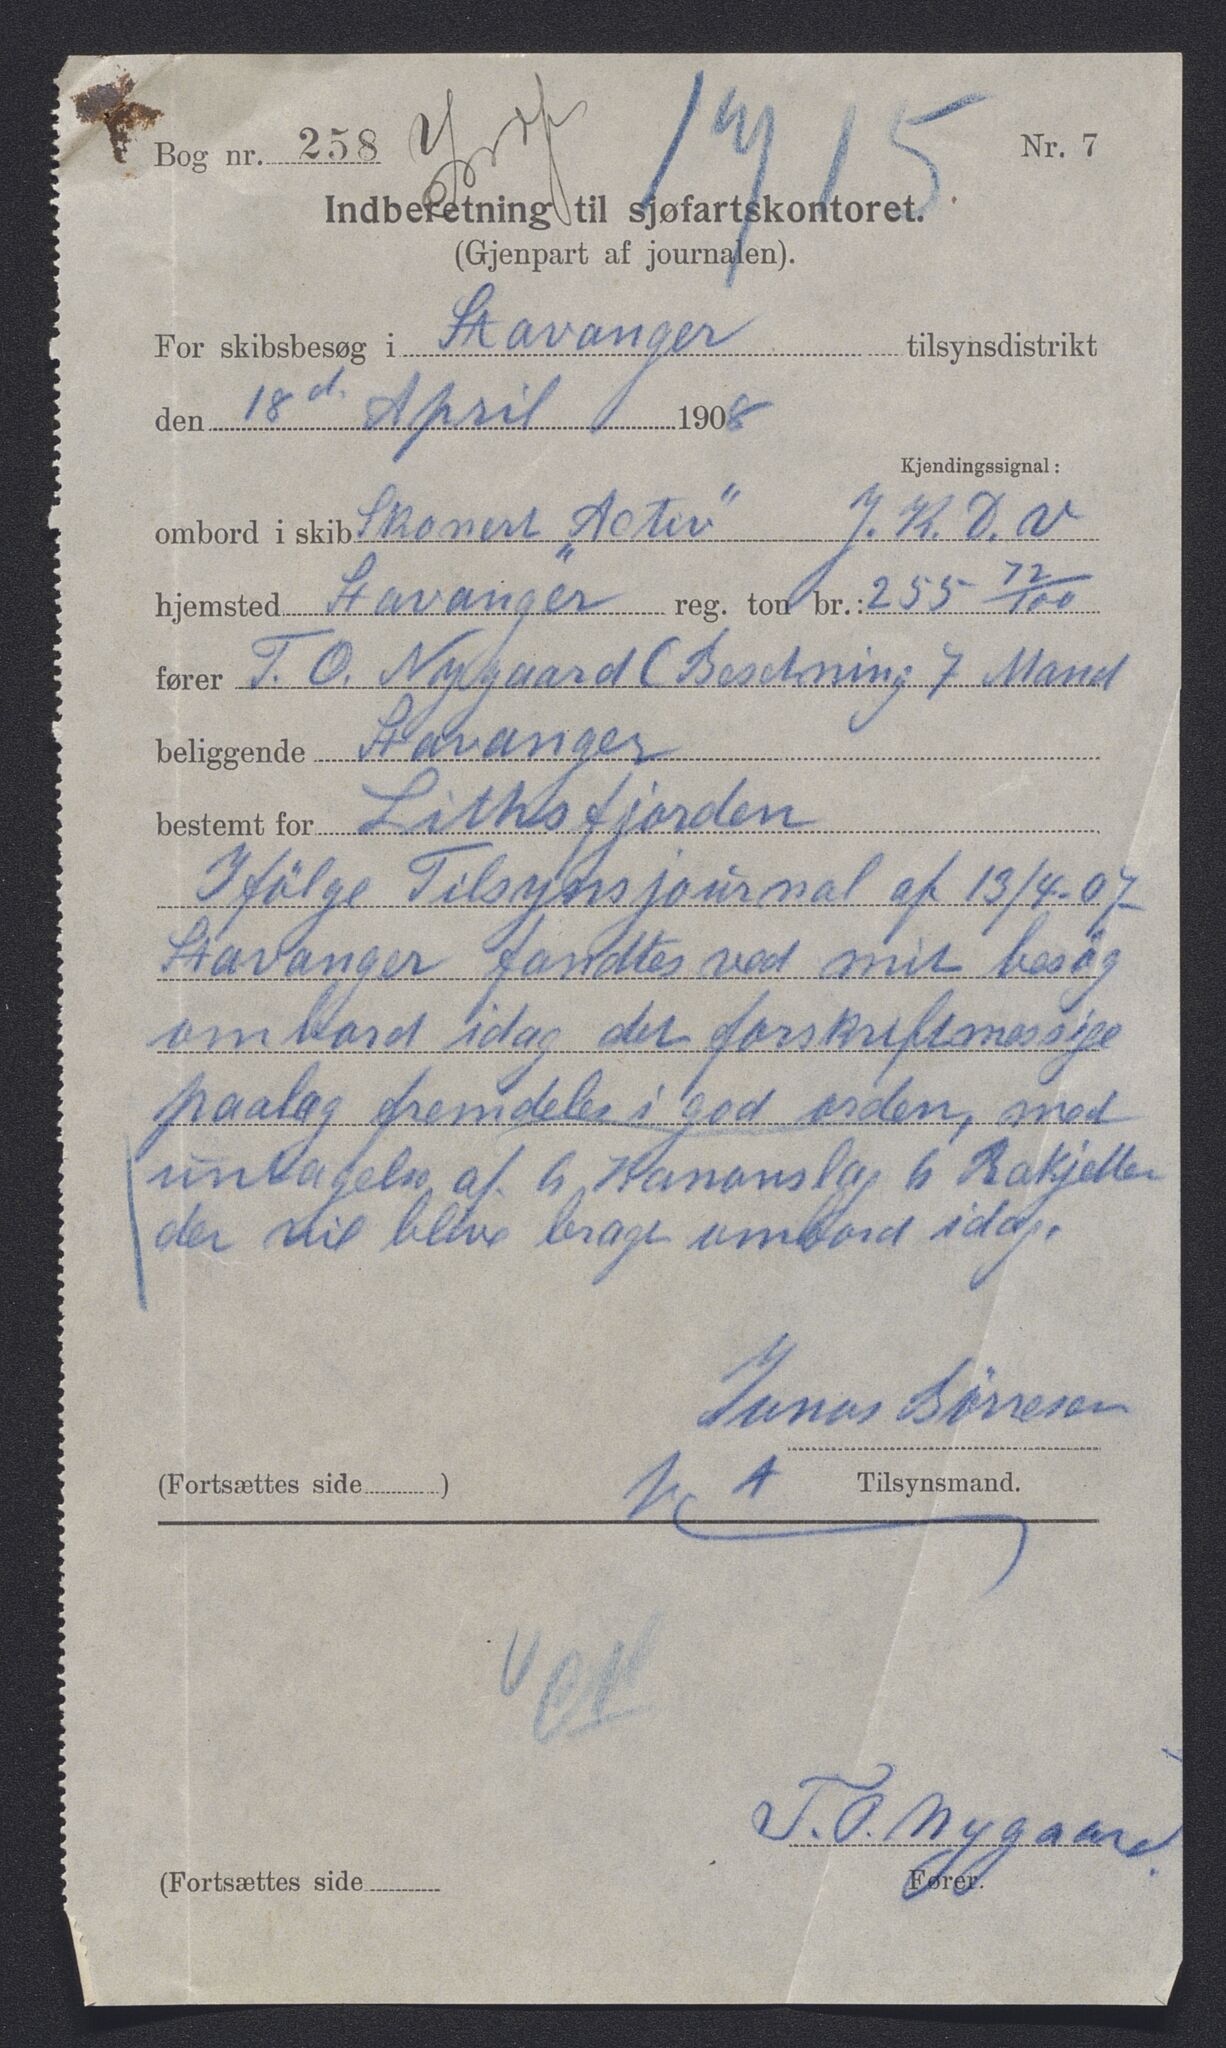 Bog nr. 258
1715
Nr. 7
Indberetning til sjøfartskontoret.
(Gjenpart af journalen).
For skibsbesøg i Stavanger tilsynsdistrikt
den 18d. April 1908
Kjendingssignal:
ombord i skib Skonert „Activ" J. K. D. V
hjemsted Stavanger reg. ton br.: 255 72/100
fører T. O. Nygaard (Besetning 7 Mand
beliggende Stavanger
bestemt for Lithsfjorden
Ifölge Tilsynsjournal af 13/4-07
Stavanger fandtes ved mit besøg
ombord idag det forskriftmessige
paalæg fremdeles i god orden, med
untagelse af 6 Kanonslag 6 Rakjetter
der vil blive bragt ombord idag.
Jonas Börresen
(Fortsættes side ) Tilsynsmand.
T. O. Nygaard.
(Fortsættes side Fører.